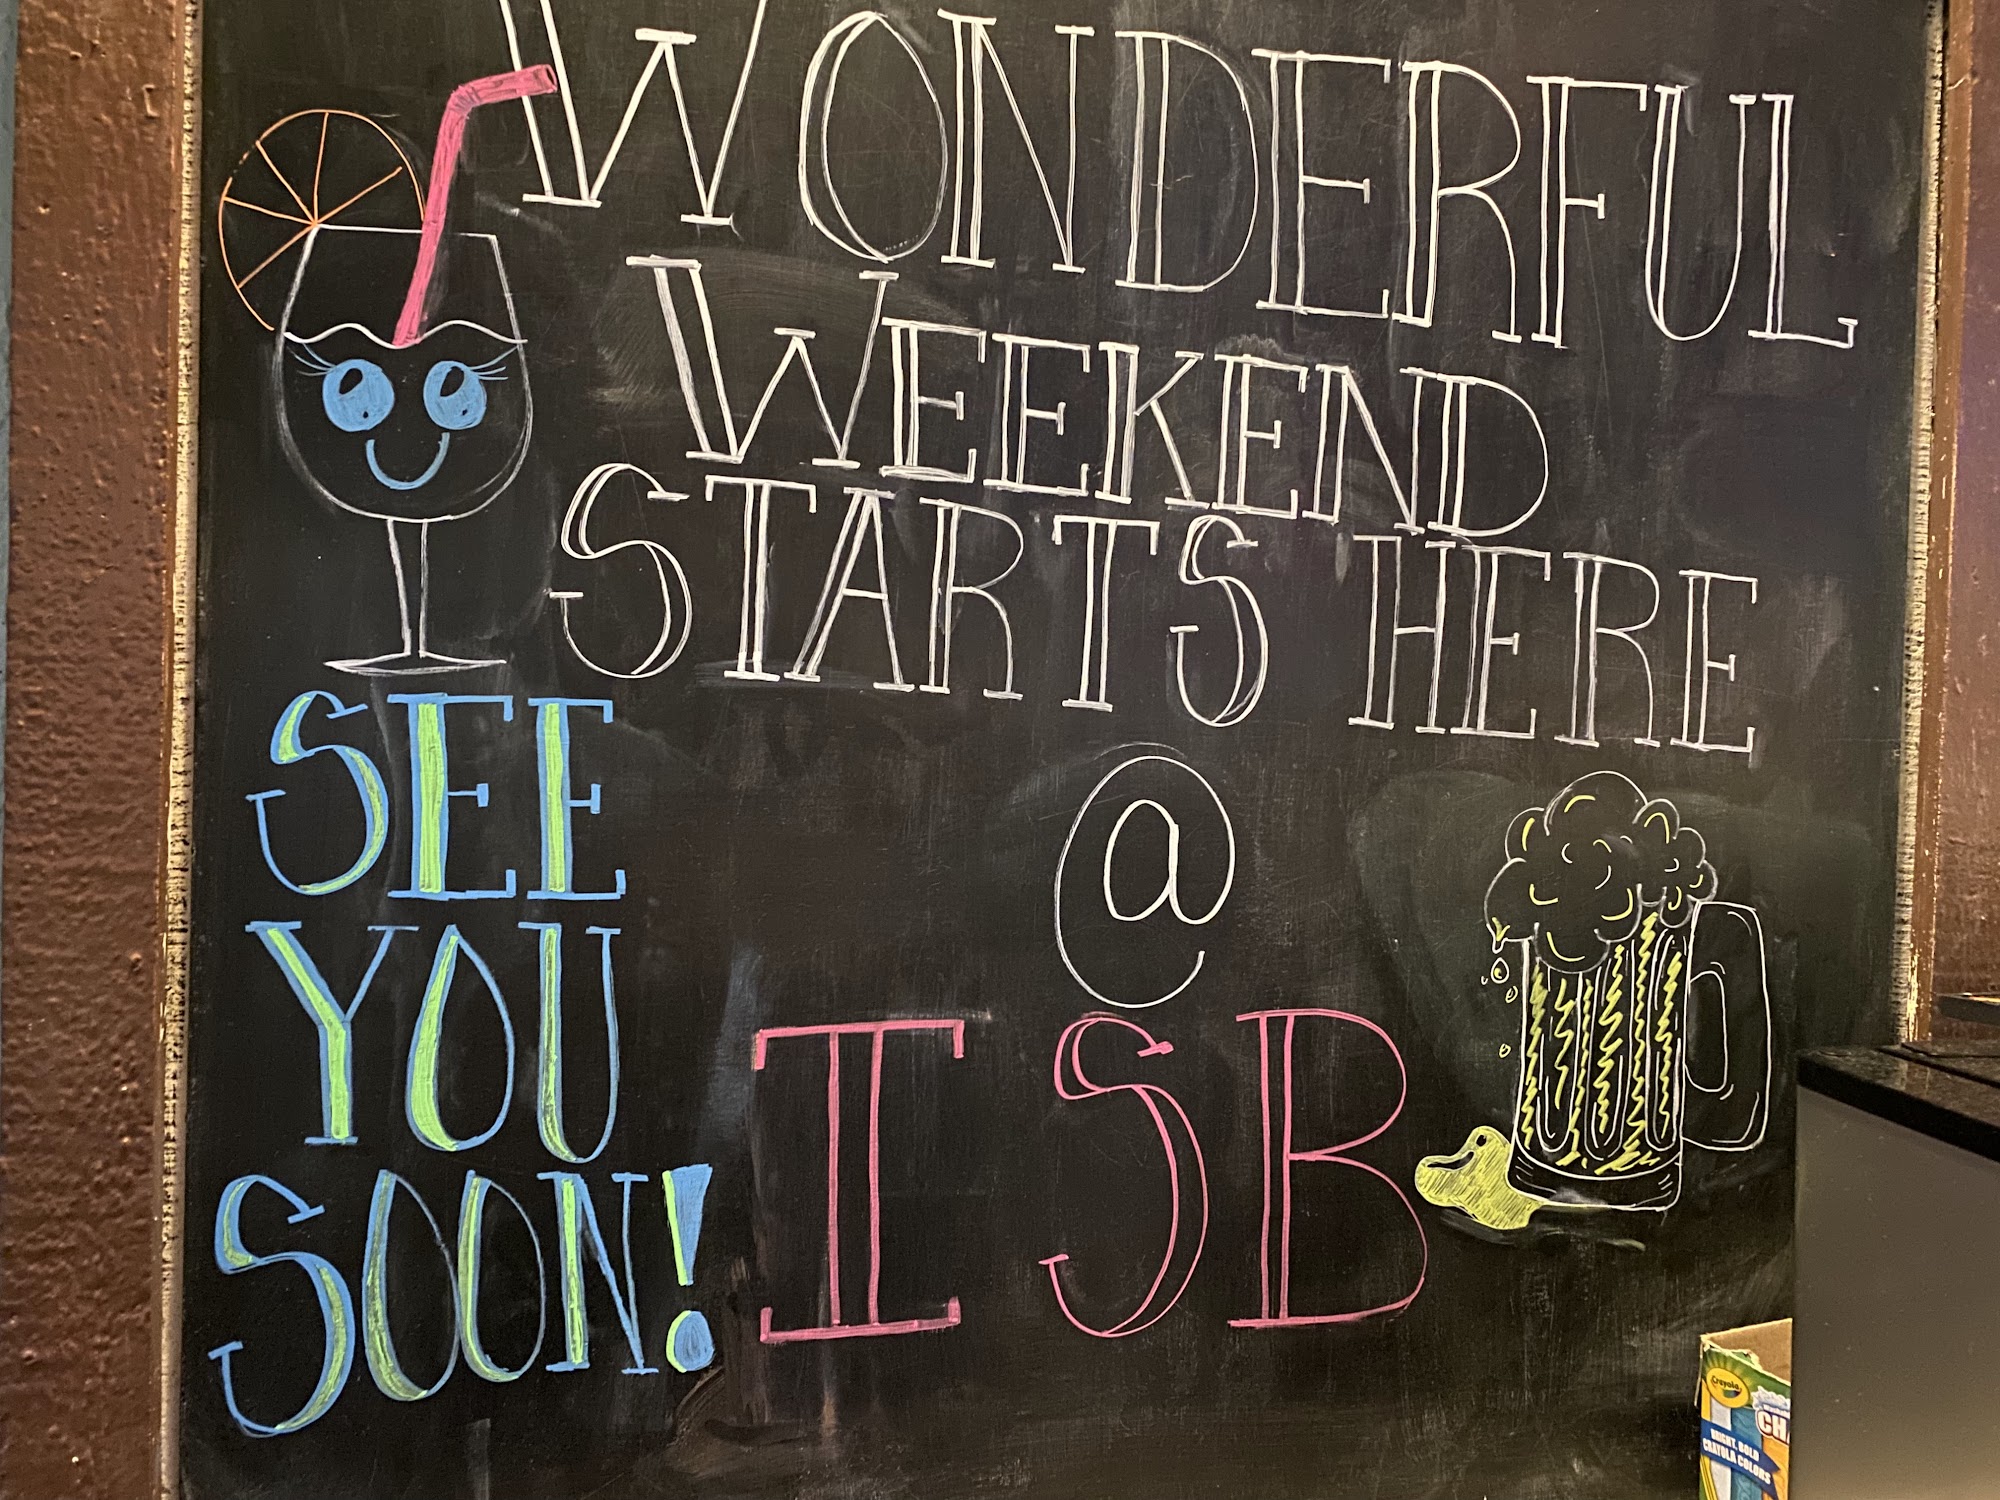 WONDERFUL
WEEKEND
STARTS HERE
@
ISB
SEE
YOU
SOON!
Crayola
BRIGHT, BOLD
CRAYOLA COLORS